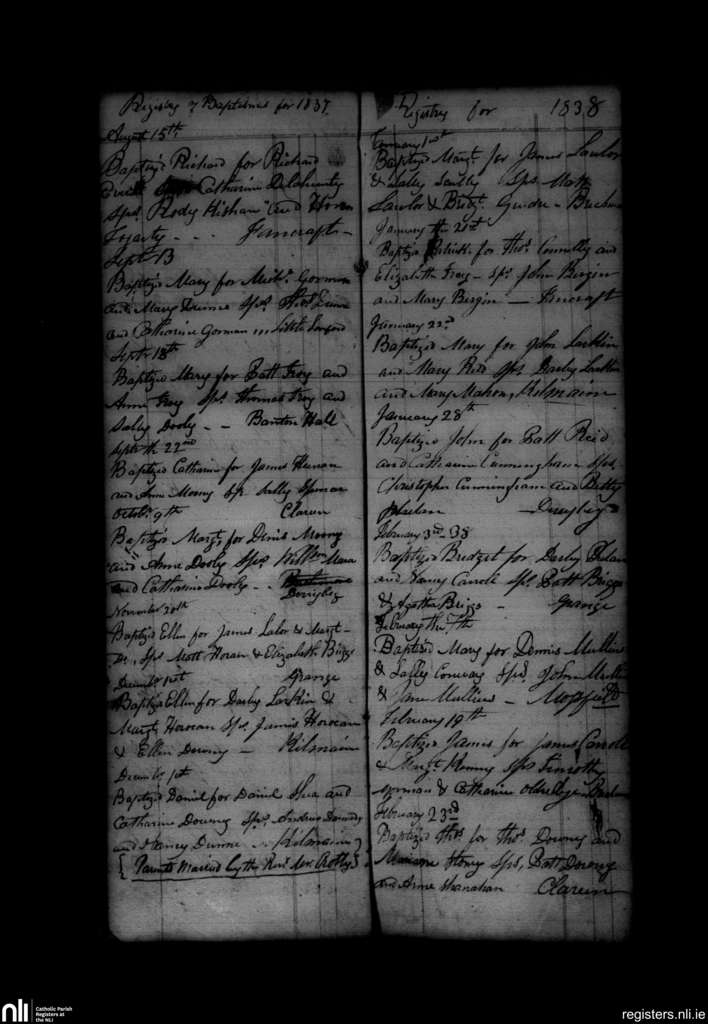 Registry of Baptisms for 1837
August 15th
Baptiz'd Richard for Richard
Catharine Delahunty
Spr. Rody Kishan and Honor
Fogarty - - . Jincraft -
Septr 13
Baptiz'd Mary for Michl. Gorman
and Mary Dunne Sprs. Thos.
and Catharine Gorman in Little
Septr 18th
Baptized Mary for Patt Troy and
Anne Troy Sprs. Thomas Troy and
Sally Dooly - - Banton Hall
Septr the 22nd
Baptized Catharine for James Heenan
and Anne Moony Sp. Sally
Octobr. 9th Clareen
Baptiz'd Margt. for Denis Moony
and Anne Dooly Sprs. Willm Mara
and Catharine Dooly - .
November 30th
Baptiz'd Ellen for James Lalor & Margt -
Sprs Matt Horan & Elizabeth Briggs
Decembr 1st Grange
Baptiz'd Ellen for Darby Larkin &
Margt. Horoean Sprs. James Horoean
& Ellen Downy - Kilmain
Decembr 1st
Baptiz'd Daniel for Daniel Shea and
Catharine Downy Sprs. Andrew
and Nancy Dunne . . Kilmain
{ Parents Married by the Revd. Mr.
Registry for 1838
January 1st
Baptiz'd Margt. for James Lawlor
& Sally Scully Sprs. Matt
Lawlor & Bridgt. Guidra -
January the 21st
Baptiz'd for Thos. Connelly and
Elizabeth Troy - Sprs. John Bergin
and Mary Bergin - Jincraft
January 22nd
Baptized Mary for John Larkin
and Mary Reid Sprs. Darby Larkin
and Mary Mahon, Kilmain
January 28th
Baptized John for Patt Reid
and Catharine Cunningham Sprs.
Christopher Cunningham and Betty
Phelan
February 3rd - 38
Baptized Bridget for Darby Phelan
and Nancy Carroll Sprs. Patt Briggs
& Agatha Briggs - Grange
February the 7th
Baptised Mary for Dennis Mullins
& Sally Conway Sprs. John
& Jane Mullins - Mossfield
February 19th
Baptized James for James Carroll
& Margt. Kenny Sprs Timothy
Gorman & Catharine
February 23rd
Baptized Thos. for Thos. Downy and
Sprs, Patt Downy
and Anne Shanahan Clareen
nli
Catholic Parish
Registers at
the NLI
registers.nli.ie